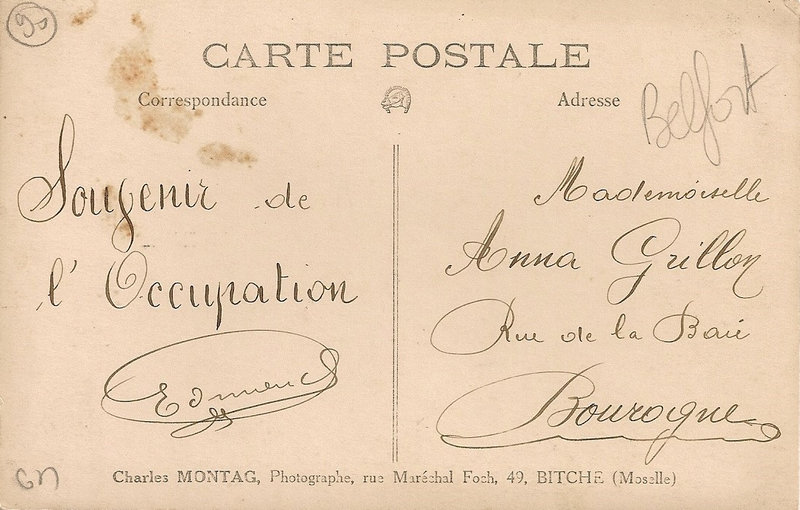 90
CARTE POSTALE
Correspondance
Adresse
Belfort
Souvenir de
l'Occupation
Edmond
Mademoiselle
Anna Grillon
Rue de la Baie
Bourogne
GN
Charles MONTAG, Photographe, rue Maréchal Foch, 49, BITCHE (Moselle)